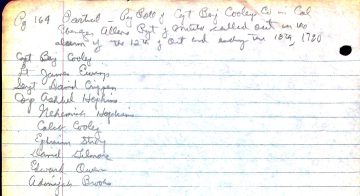 Pg 164 Partial - Pay Roll of Cpt Benj Cooley Co in Col
Allens Rgt of called out in the
alarm of the 12th of Oct and ending the 18th, 1780
Cpt Benj Cooley
Lt James
Sergt David Crippen
Corp Ashbel Hopkins
Nehemiah Hopkins
Caleb Cooley
Ephraim Strong
Daniel Gilmore
Edward Owen
Adonijah Brooks